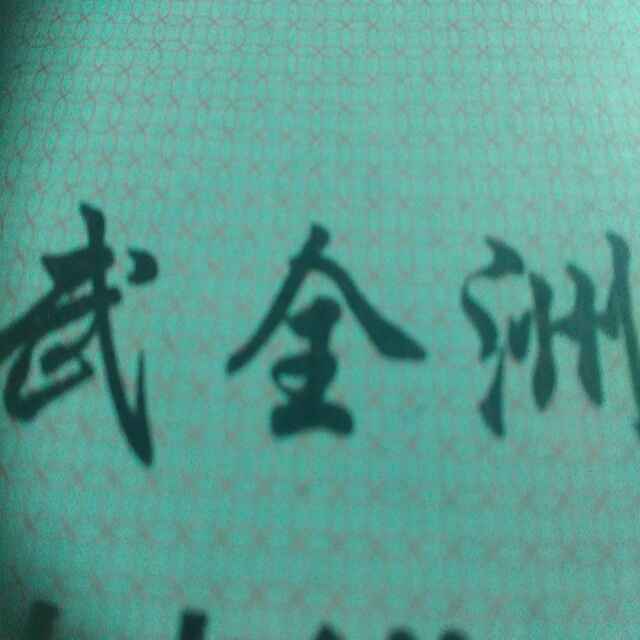 武全洲